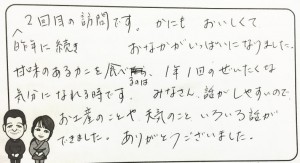 2回目の訪問です。かにも おいしくて
昨年に続き おなかがいっぱいになりました。
甘味のあるカニを食べるのは、1年1回のぜいたくな
気分になれる時です。 みなさん、話がしやすいので
お土産のことや 天気のこと いろいろ話が
できました。 ありがとうございました。